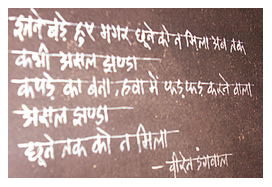 इतने बड़े हुए मगर छूने को न मिला अब तक
कभी असल झण्डा
कपड़े का बना, हवा में फड़फड़ करने वाला
असल झण्डा
छूने तक को न मिला
– वीरेन डंगवाल